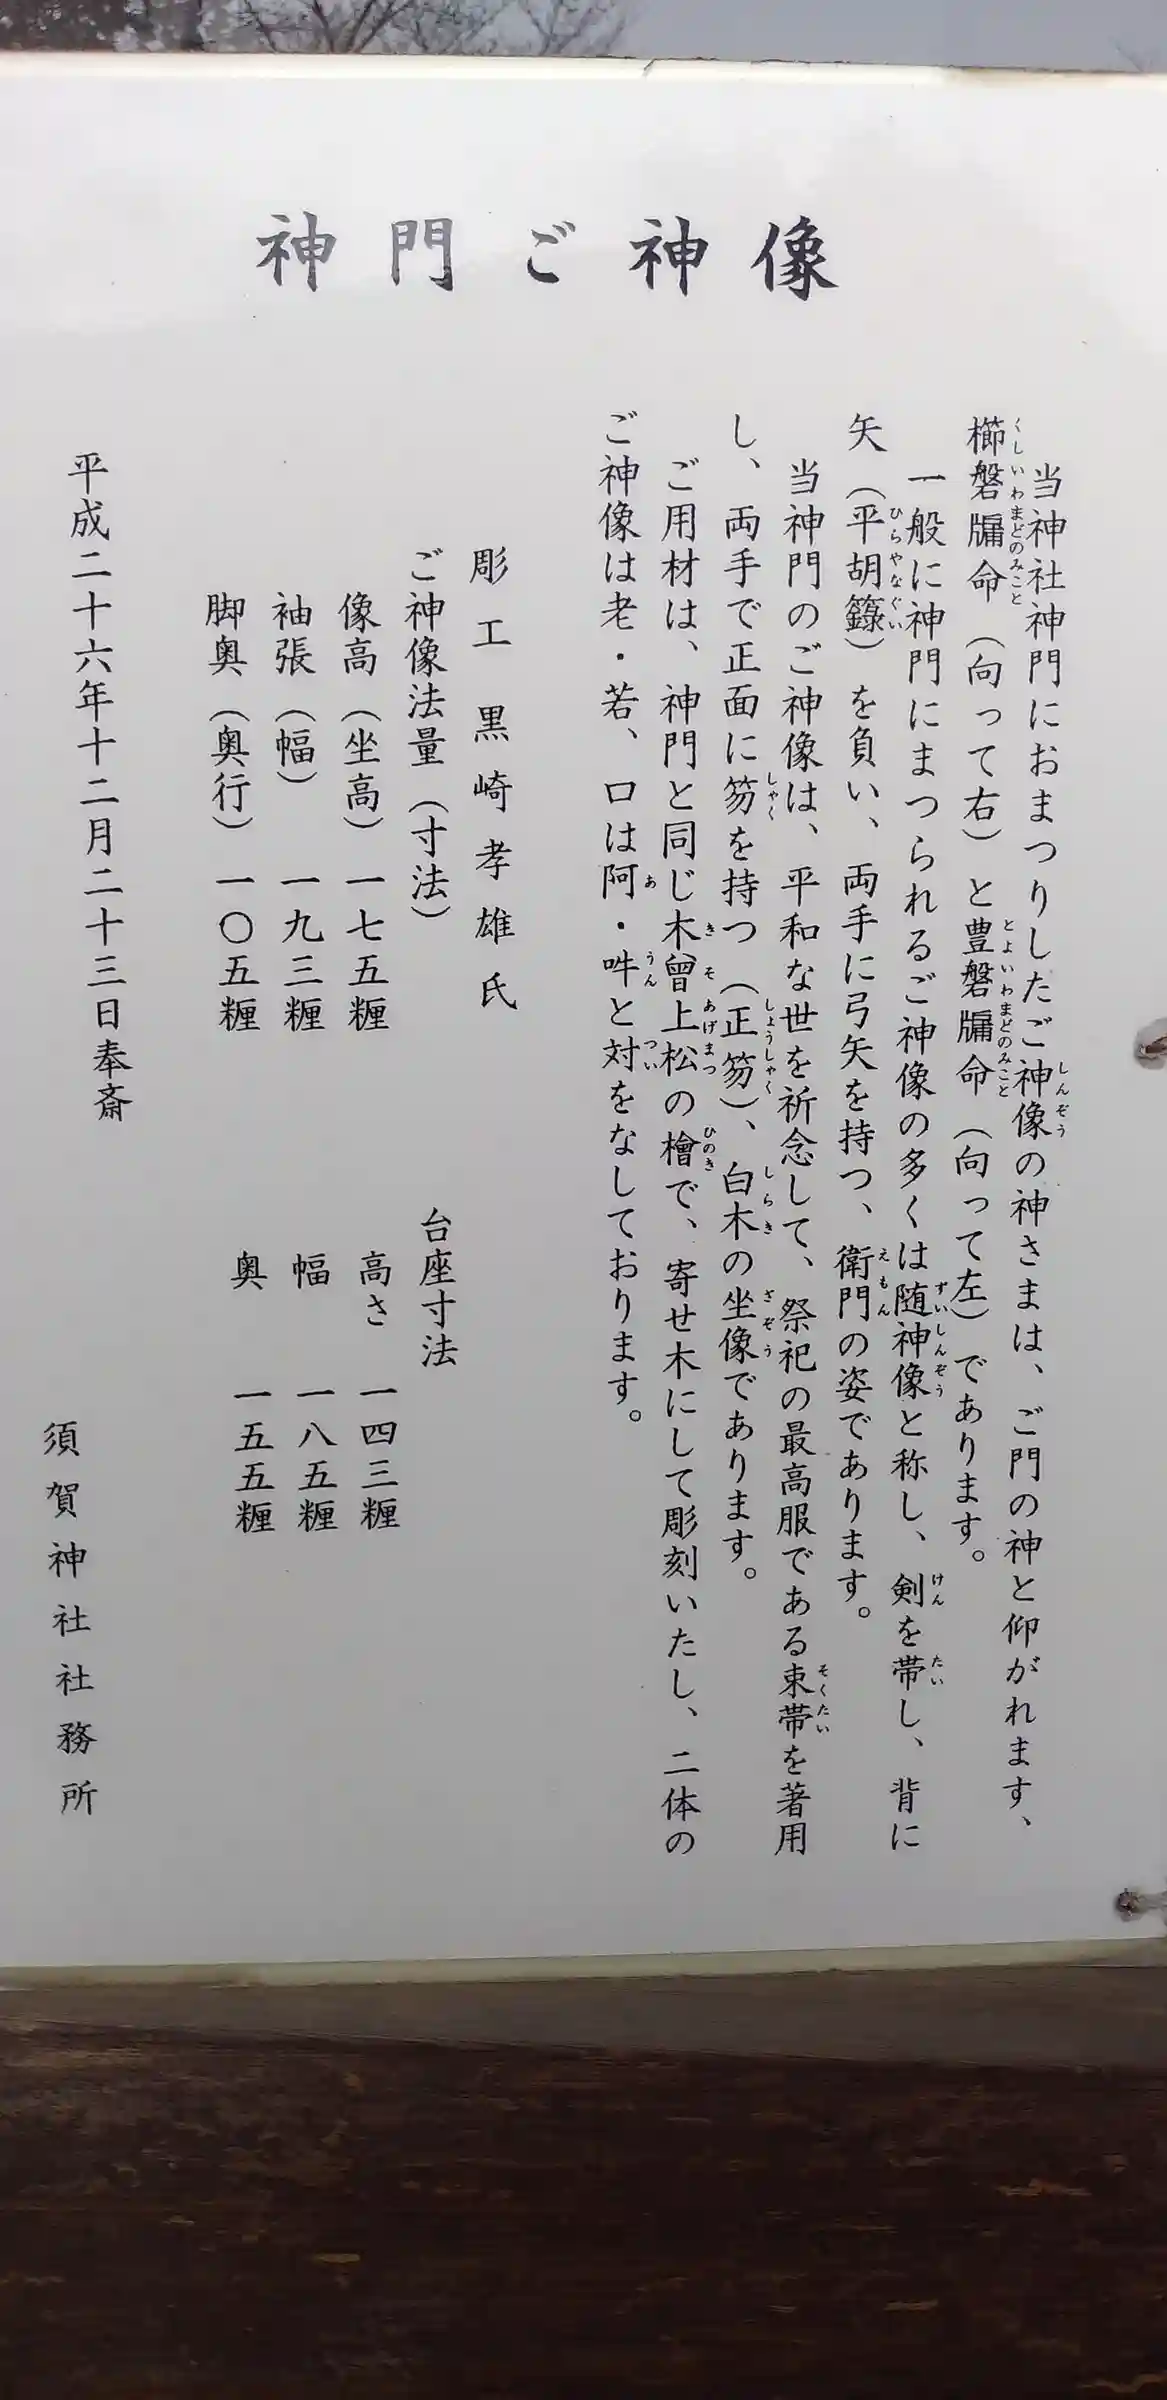 神門ご神像
当神社神門におまつりしたご神像の神さまは、ご門の神と仰がれます、
櫛磐牖命（向って右）と豊磐牖命（向って左）であります。
一般に神門にまつられるご神像の多くは随神像と称し、剣を帯し、背に
矢（平胡籙）を負い、両手に弓矢を持つ、衛門の姿であります。
当神門のご神像は、平和な世を祈念して、祭祀の最高服である束帯を著用
し、両手で正面に笏を持つ（正笏）、白木の坐像であります。
ご用材は、神門と同じ木曾上松の檜で、寄せ木にして彫刻いたし、二体の
ご神像は老・若、口は阿・吽と対をなしております。
彫工 黒崎孝雄氏
ご神像法量（寸法）
像高（坐高）一七五糎
袖張（幅）一九三糎
脚奥（奥行）一〇五糎
台座寸法
高さ 一四三糎
幅 一八五糎
奥 一五五糎
平成二十六年十二月二十三日奉斎
須賀神社社務所